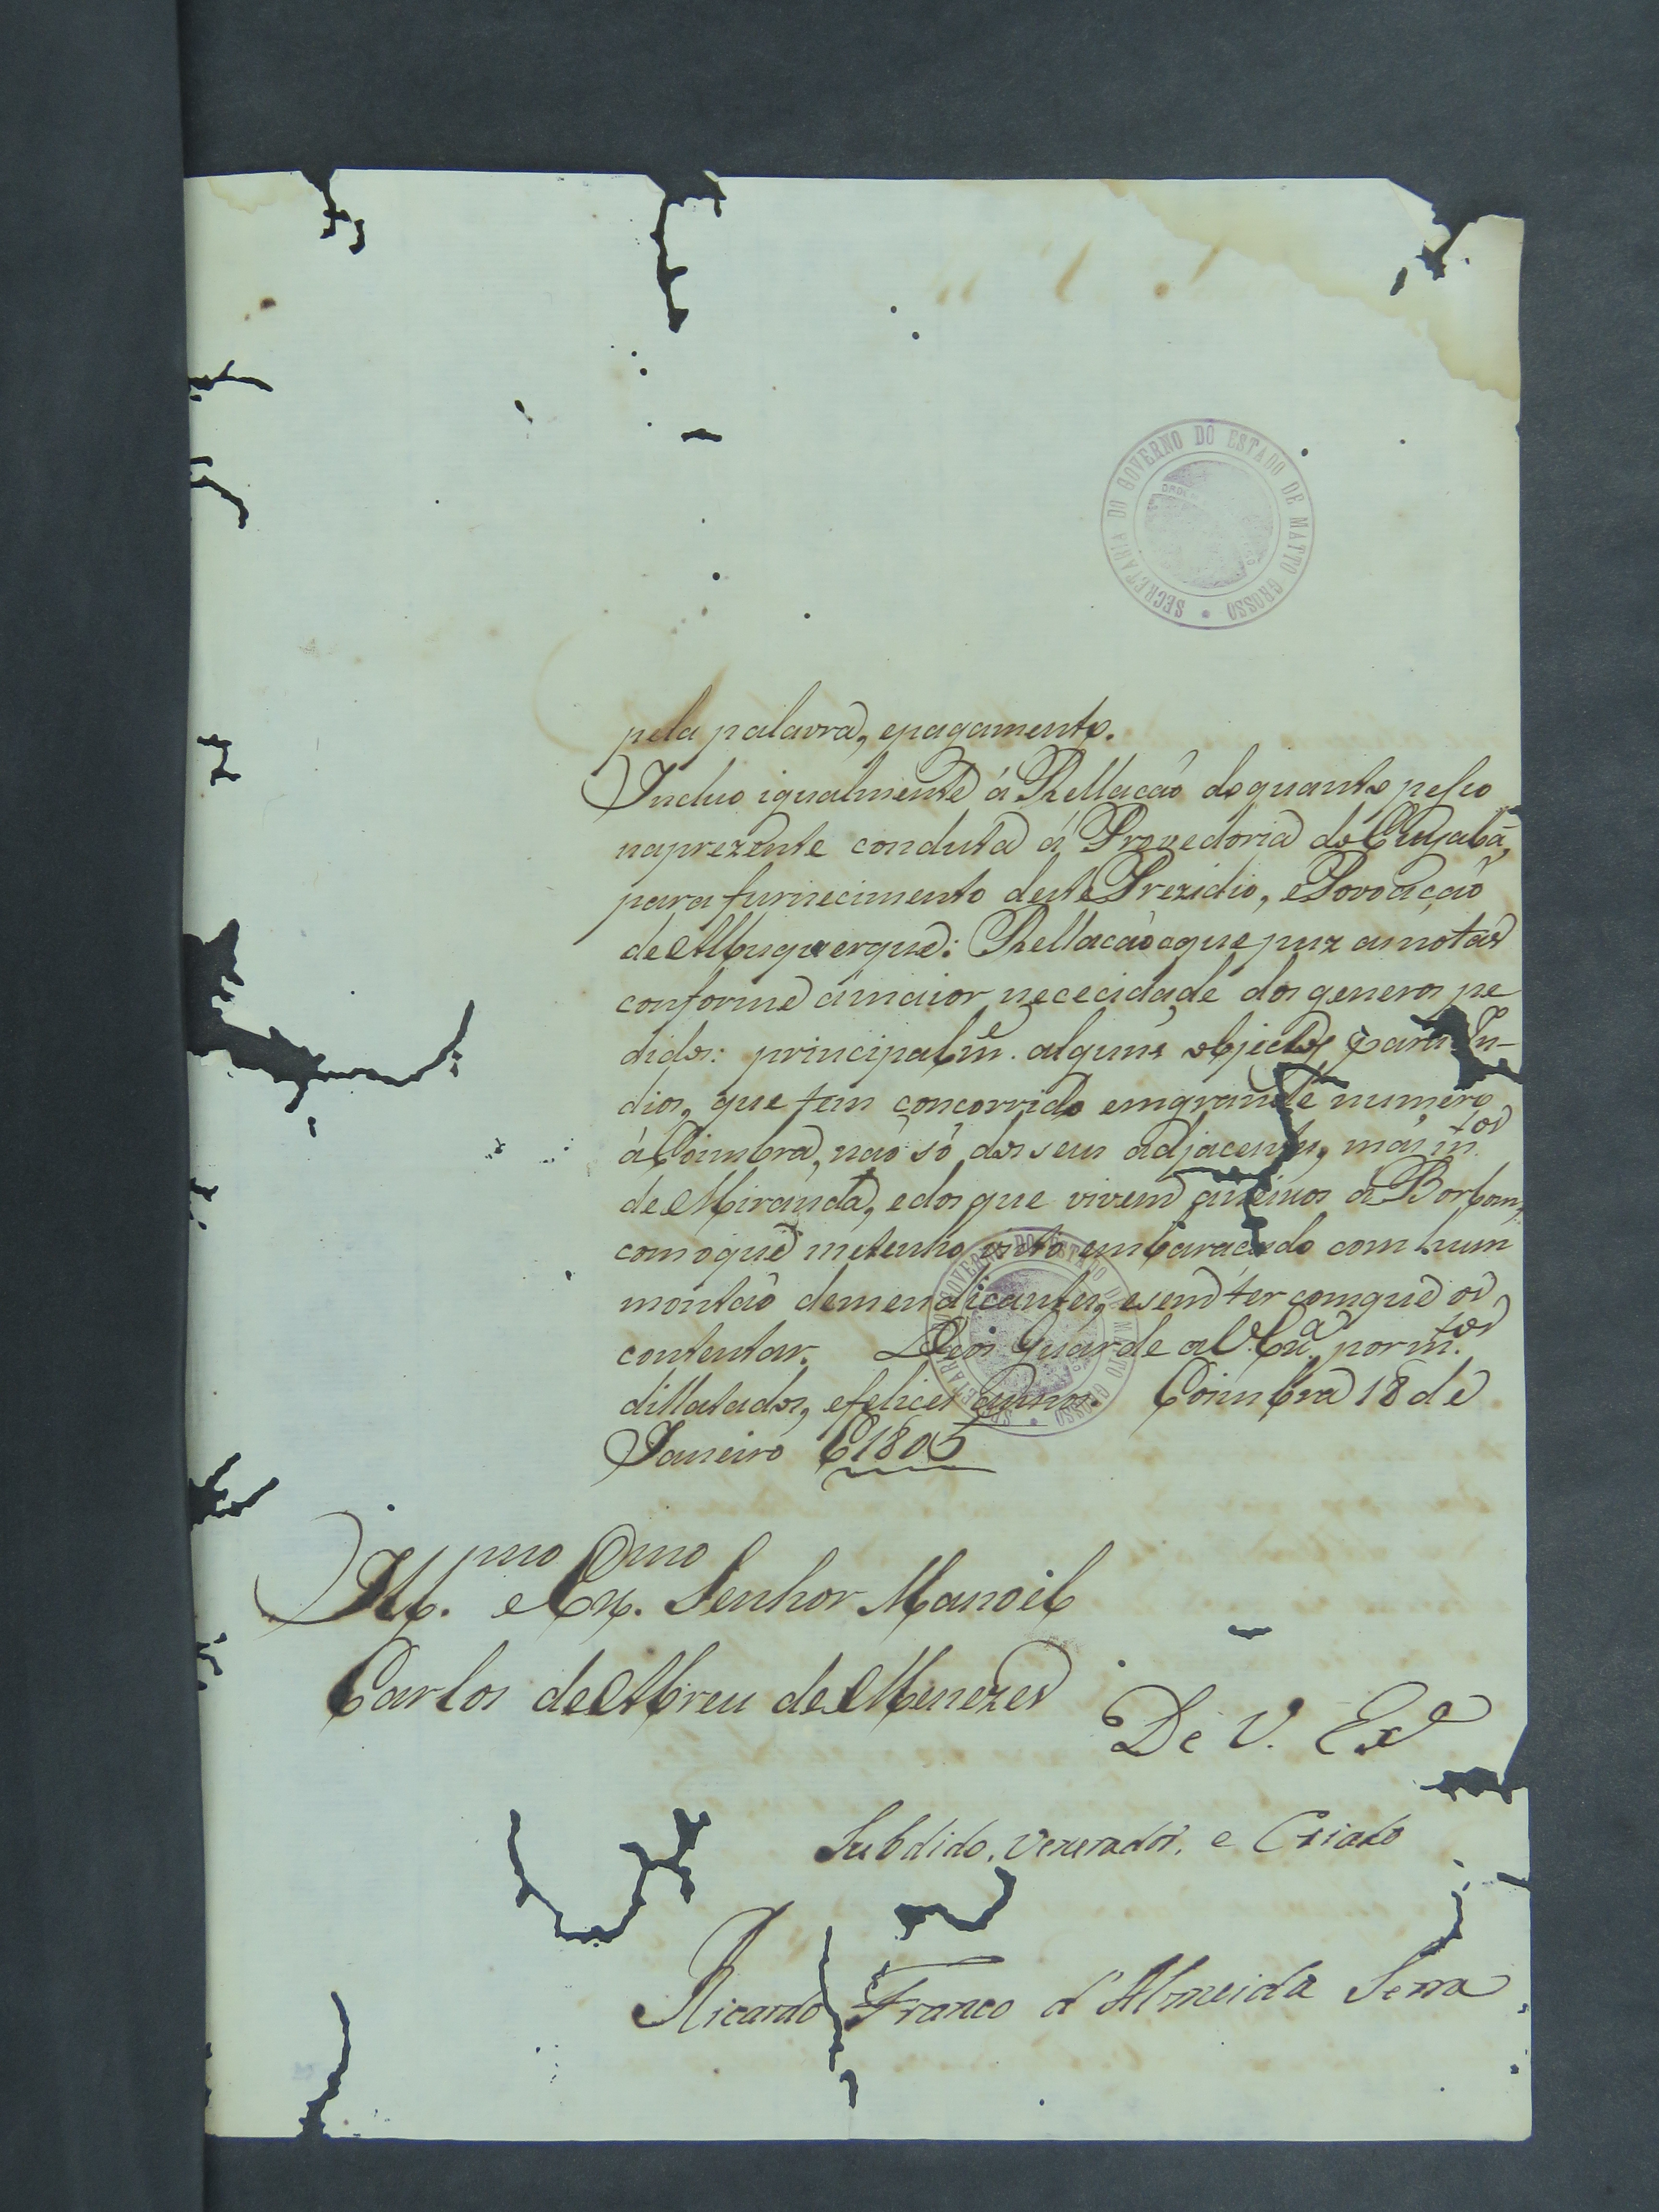 SECRETARIA DO GOVERNO DO ESTADO DE MATTO GROSSO
pela palavra, epagamento.
Incluo igualmente á Rellacaõ doquanto peſso
naprezente conduta á Provedoria do Cuyabá,
para furnecimento deste Prezidio, e Povoaçaõ
de Albuquerque: Rellacaõ aque puz as notas
conforme ámaior nececidade dos generos pe
didos: principalm.e alguns objectos para In-
dios, que tem concorrido emgrande numero
á Coimbra, naõ só dos seus adjacentes, más m.tos
de Miranda, edos que vivem aneixos a Borbon,
com oque metenho visto embaracado com hum
montaõ demendicantes, esem ter comque os
contentar. Deos Guarde a V. Ex.a por m.tos
dillatados, efelices annos. Coimbra 18 de
Janeiro E 1805
SECRETARIA DO GOVERNO DO ESTADO DE MATTO GROSSO
Ill.mo e Ex.mo Senhor Manoel
Carlos de Abreu de Menezes
De V. Ex.a
Subdido, Venerador, e Criado
Ricardo Franco d'Almeida Serra